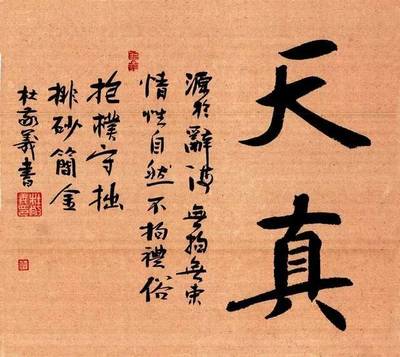 天真
源於辭海 無拘無束
情性自然 不拘禮俗
抱樸守拙
排砂簡金
杜 義書